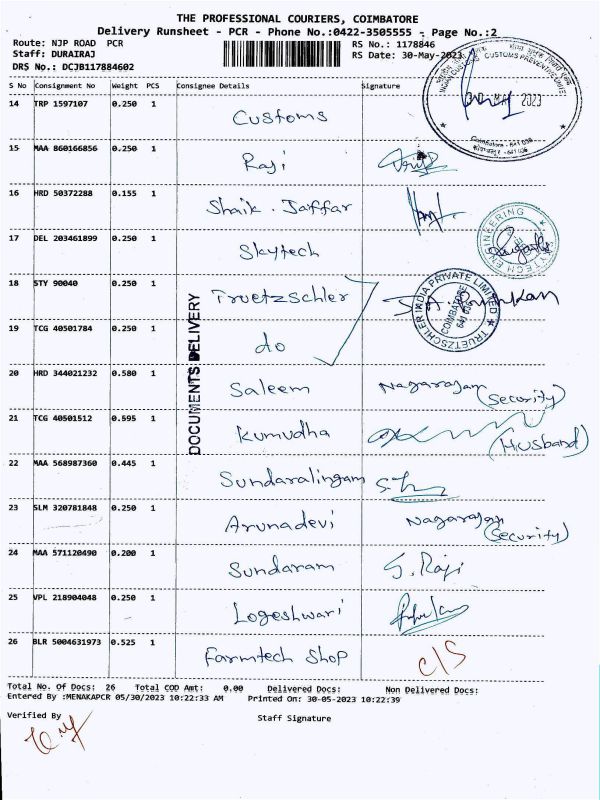 THE PROFESSIONAL COURIERS, COIMBATORE
Delivery Runsheet - PCR - Phone No.:0422-3505555 - Page No.:2
Route: NJP ROAD PCR RS No.: 1178846
Staff: DURAIRAJ RS Date: 30-May-2023
DRS No.: DCJB117884602
S No Consignment No Weight PCS Consignee Details Signature
14 TRP 1597107 0.250 1 Customs
INDIAN CUSTOMS CUSTOMS PREVENTIVE UNIT
MAY 2023
Coimbatore - 641 018
15 MAA 860166856 0.250 1 Raji
16 HRD 50372288 0.155 1 Shaik. Jaffar
17 DEL 203461899 0.250 1 Skytech
ENGINEERING
18 STY 90040 0.250 1 Truetzschler
TRUETZSCHLER INDIA PRIVATE LIMITED
COIMBATORE
DOCUMENTS DELIVERY
19 TCG 40501784 0.250 1 do
20 HRD 344021232 0.580 1 Saleem Nagarajan
(Security)
21 TCG 40501512 0.595 1 Kumudha
(Husband)
22 MAA 568987360 0.445 1 Sundaralingam
23 SLM 320781848 0.250 1 Arunadevi Nagarajan
(Security)
24 MAA 571120490 0.200 1 Sundaram S. Raji
25 VPL 218904048 0.250 1 Logeshwari
26 BLR 5004631973 0.525 1 Farmtech Shop C/S
Total No. Of Docs: 26 Total COD Amt: 0.00 Delivered Docs: Non Delivered Docs:
Entered By :MENAKAPCR 05/30/2023 10:22:33 AM Printed On: 30-05-2023 10:22:39
Verified By Staff Signature